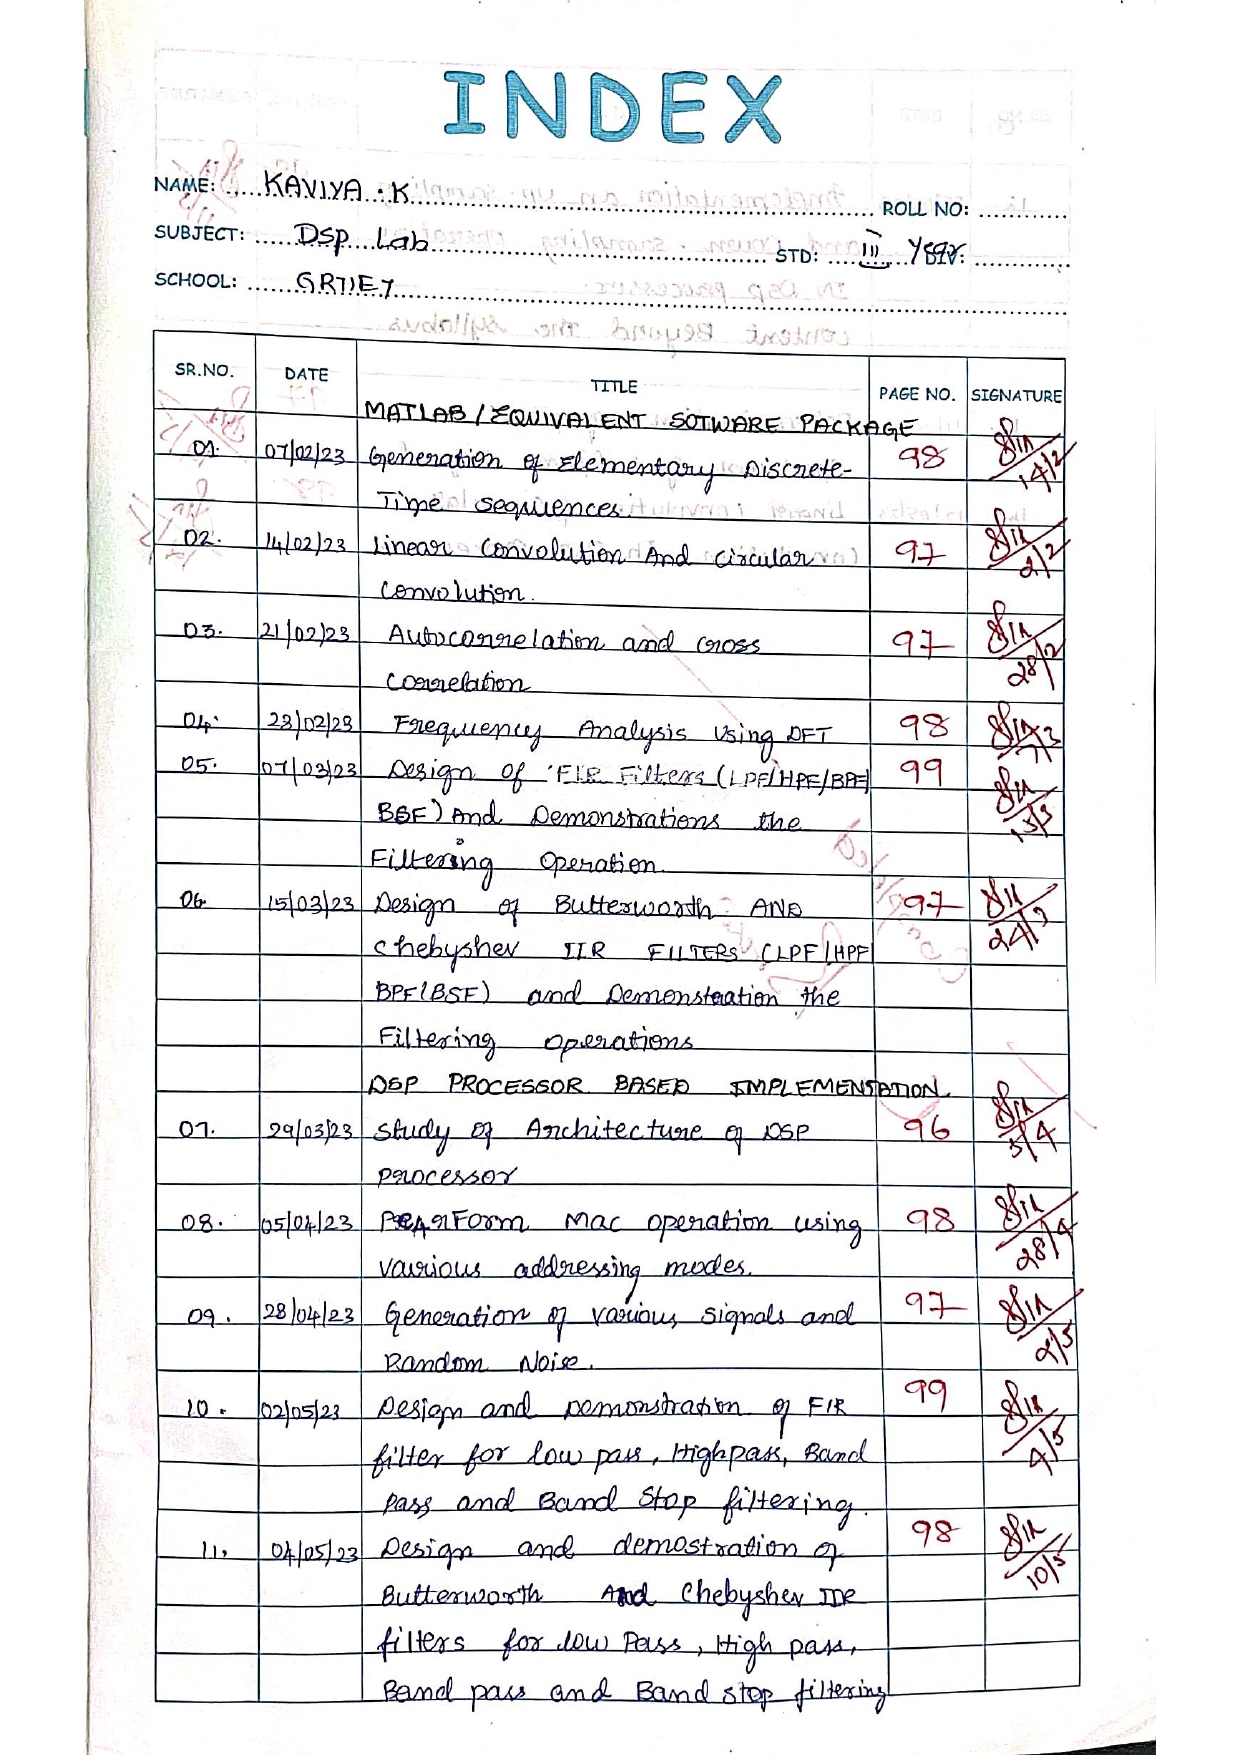 INDEX
NAME: KAVIYA.K ROLL NO:
SUBJECT: Dsp Lab STD: III Year DIV:
SCHOOL: GRTIET
SR.NO. DATE TITLE PAGE NO. SIGNATURE
MATLAB / EQUIVALENT SOTWARE PACKAGE
01. 07/02/23 Generation of Elementary Discrete- 98 14/2
Time sequences.
02. 14/02/23 Linear Convolution And Circular 97 2/2
Convolution.
03. 21/02/23 Autocorrelation and cross 97 28/2
Correlation
04. 28/02/23 Frequency Analysis Using DFT 98 7/3
05. 07/03/23 Design of FIR Filters (LPF/HPF/BPF/ 99 13/3
BSF) And Demonstrations the
Filtering Operation.
06. 15/03/23 Design of Butterworth AND 97 24/3
Chebyshev IIR FILTERS (LPF/HPF
BPF/BSF) and Demonstration the
Filtering operations
DSP PROCESSOR BASED IMPLEMENTATION.
07. 29/03/23 Study of Architecture of DSP 96 5/4
Processor
08. 05/04/23 Perform Mac operation using 98 28/4
various addressing modes.
09. 28/04/23 Generation of various signals and 97 2/5
Random Noise.
10. 02/05/23 Design and Demonstration of FIR 99 4/5
filter for low pass, Highpass, Band
Pass and Band Stop filtering.
11. 04/05/23 Design and demostration of 98 10/5
Butterworth And Chebyshev IIR
filters for low Pass, High pass,
Band pass and Band stop filtering